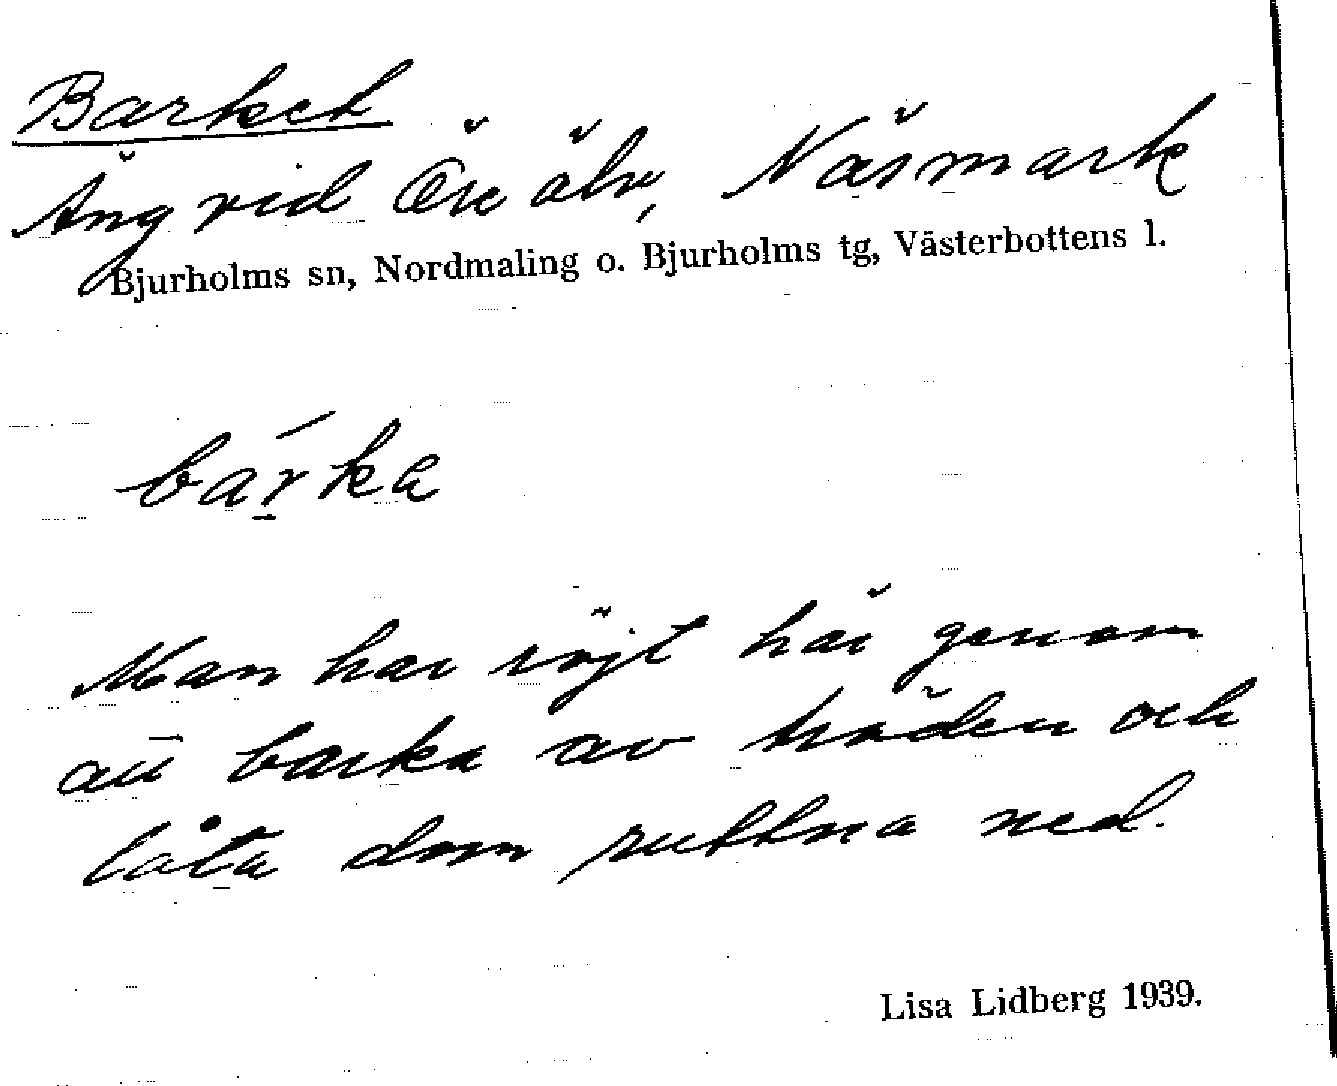 Barket
Äng vid Öre älv, Näsmark
Bjurholms sn, Nordmaling o. Bjurholms tg, Västerbottens l.
bárka
Man har röjt här genom
att barka av träden och
låta dom ruttna ned.
Lisa Lidberg 1939.